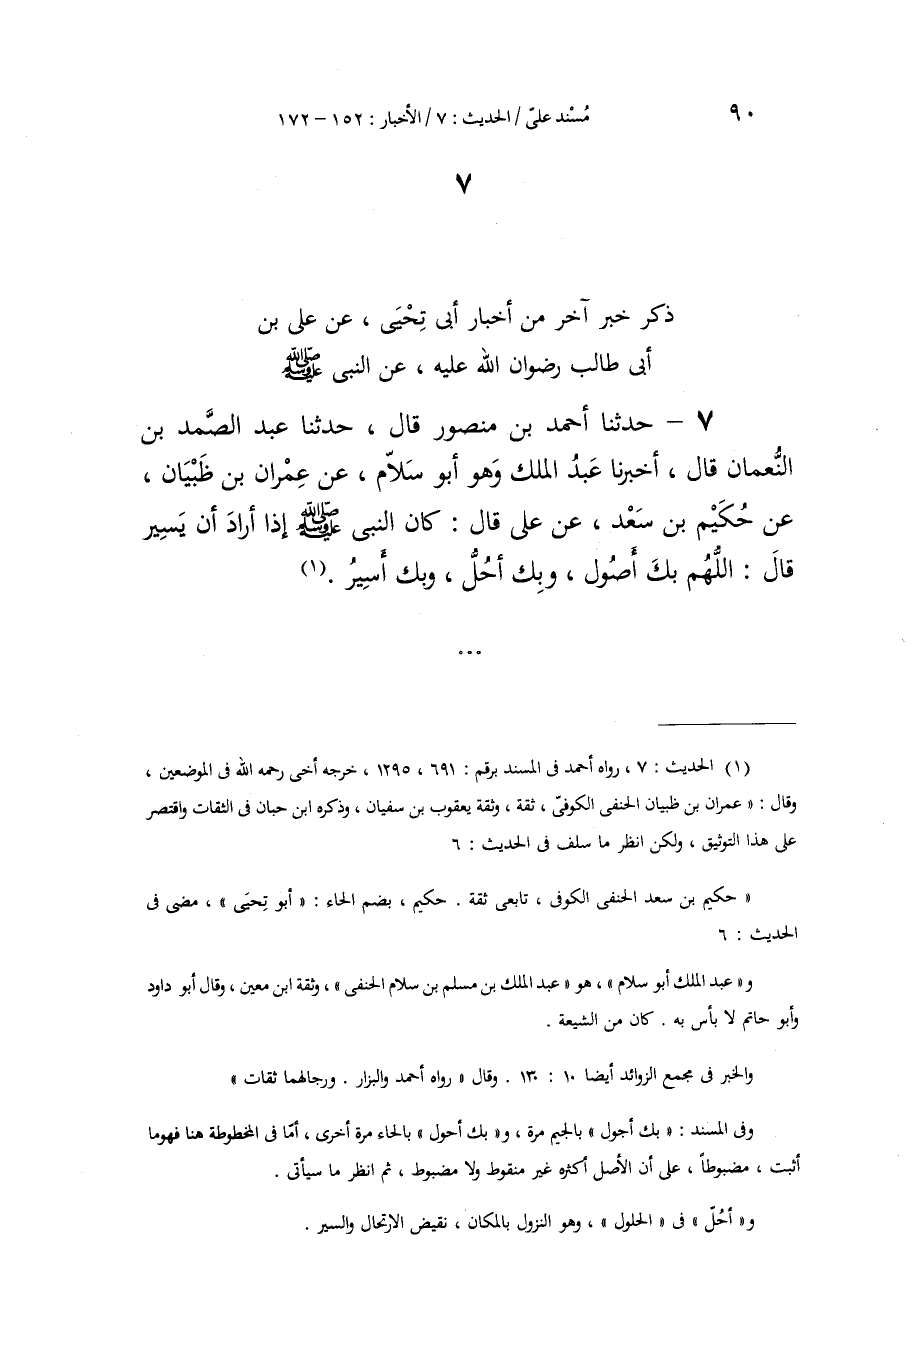 ٩٠ مُسْند علىّ / الحديث : ٧ / الأخبار : ١٥٢ – ١٧٢
٧
ذكر خبر آخر من أخبار أبى تِحْيَى ، عن على بن
أبى طالب رضوان الله عليه ، عن النبى ﷺ
٧ – حدثنا أحمد بن منصور قال ، حدثنا عبد الصَّمد بن
النُّعمان قال ، أخبرنا عَبدُ الملك وَهو أبو سَلاّم ، عن عِمْران بن ظَبْيَان ،
عن حُكَيْم بن سَعْد ، عن على قال : كان النبى ﷺ إذا أرادَ أن يَسِير
قالَ : اللُّهُم بكَ أَصُول ، وبِك أحُلُّ ، وبك أَسيرُ .(١)
...
(١) الحديث : ٧ ، رواه أحمد فى المسند برقم : ٦٩١ ، ١٢٩٥ ، خرجه أخى رحمه الله فى الموضعين ،
وقال : « عمران بن ظبيان الحنفى الكوفىّ ، ثقة ، وثقة يعقوب بن سفيان ، وذكره ابن حبان فى الثقات واقتصر
على هذا التوثيق ، ولكن انظر ما سلف فى الحديث : ٦
« حكيم بن سعد الحنفى الكوفى ، تابعى ثقة . حكيم ، بضم الحاء : « أبو تِحيَى » ، مضى فى
الحديث : ٦
و« عبد الملك أبو سلام » ، هو « عبد الملك بن مسلم بن سلام الحنفى » ، وثقة ابن معين ، وقال أبو داود
وأبو حاتم لا بأس به . كان من الشيعة .
والخبر فى مجمع الزوائد أيضا ١٠ : ١٣٠ . وقال « رواه أحمد والبزار . ورجالهما ثقات »
وفى المسند : « بك أجول » بالجيم مرة ، و« بك أحول » بالحاء مرة أخرى ، أمّا فى المخطوطة هنا فهوما
أثبت ، مضبوطاً ، على أن الأصل أكثره غير منقوط ولا مضبوط ، ثم انظر ما سيأتى .
و« أحُلّ » فى « الحلول » ، وهو النزول بالمكان ، نقيض الارتحال والسير .